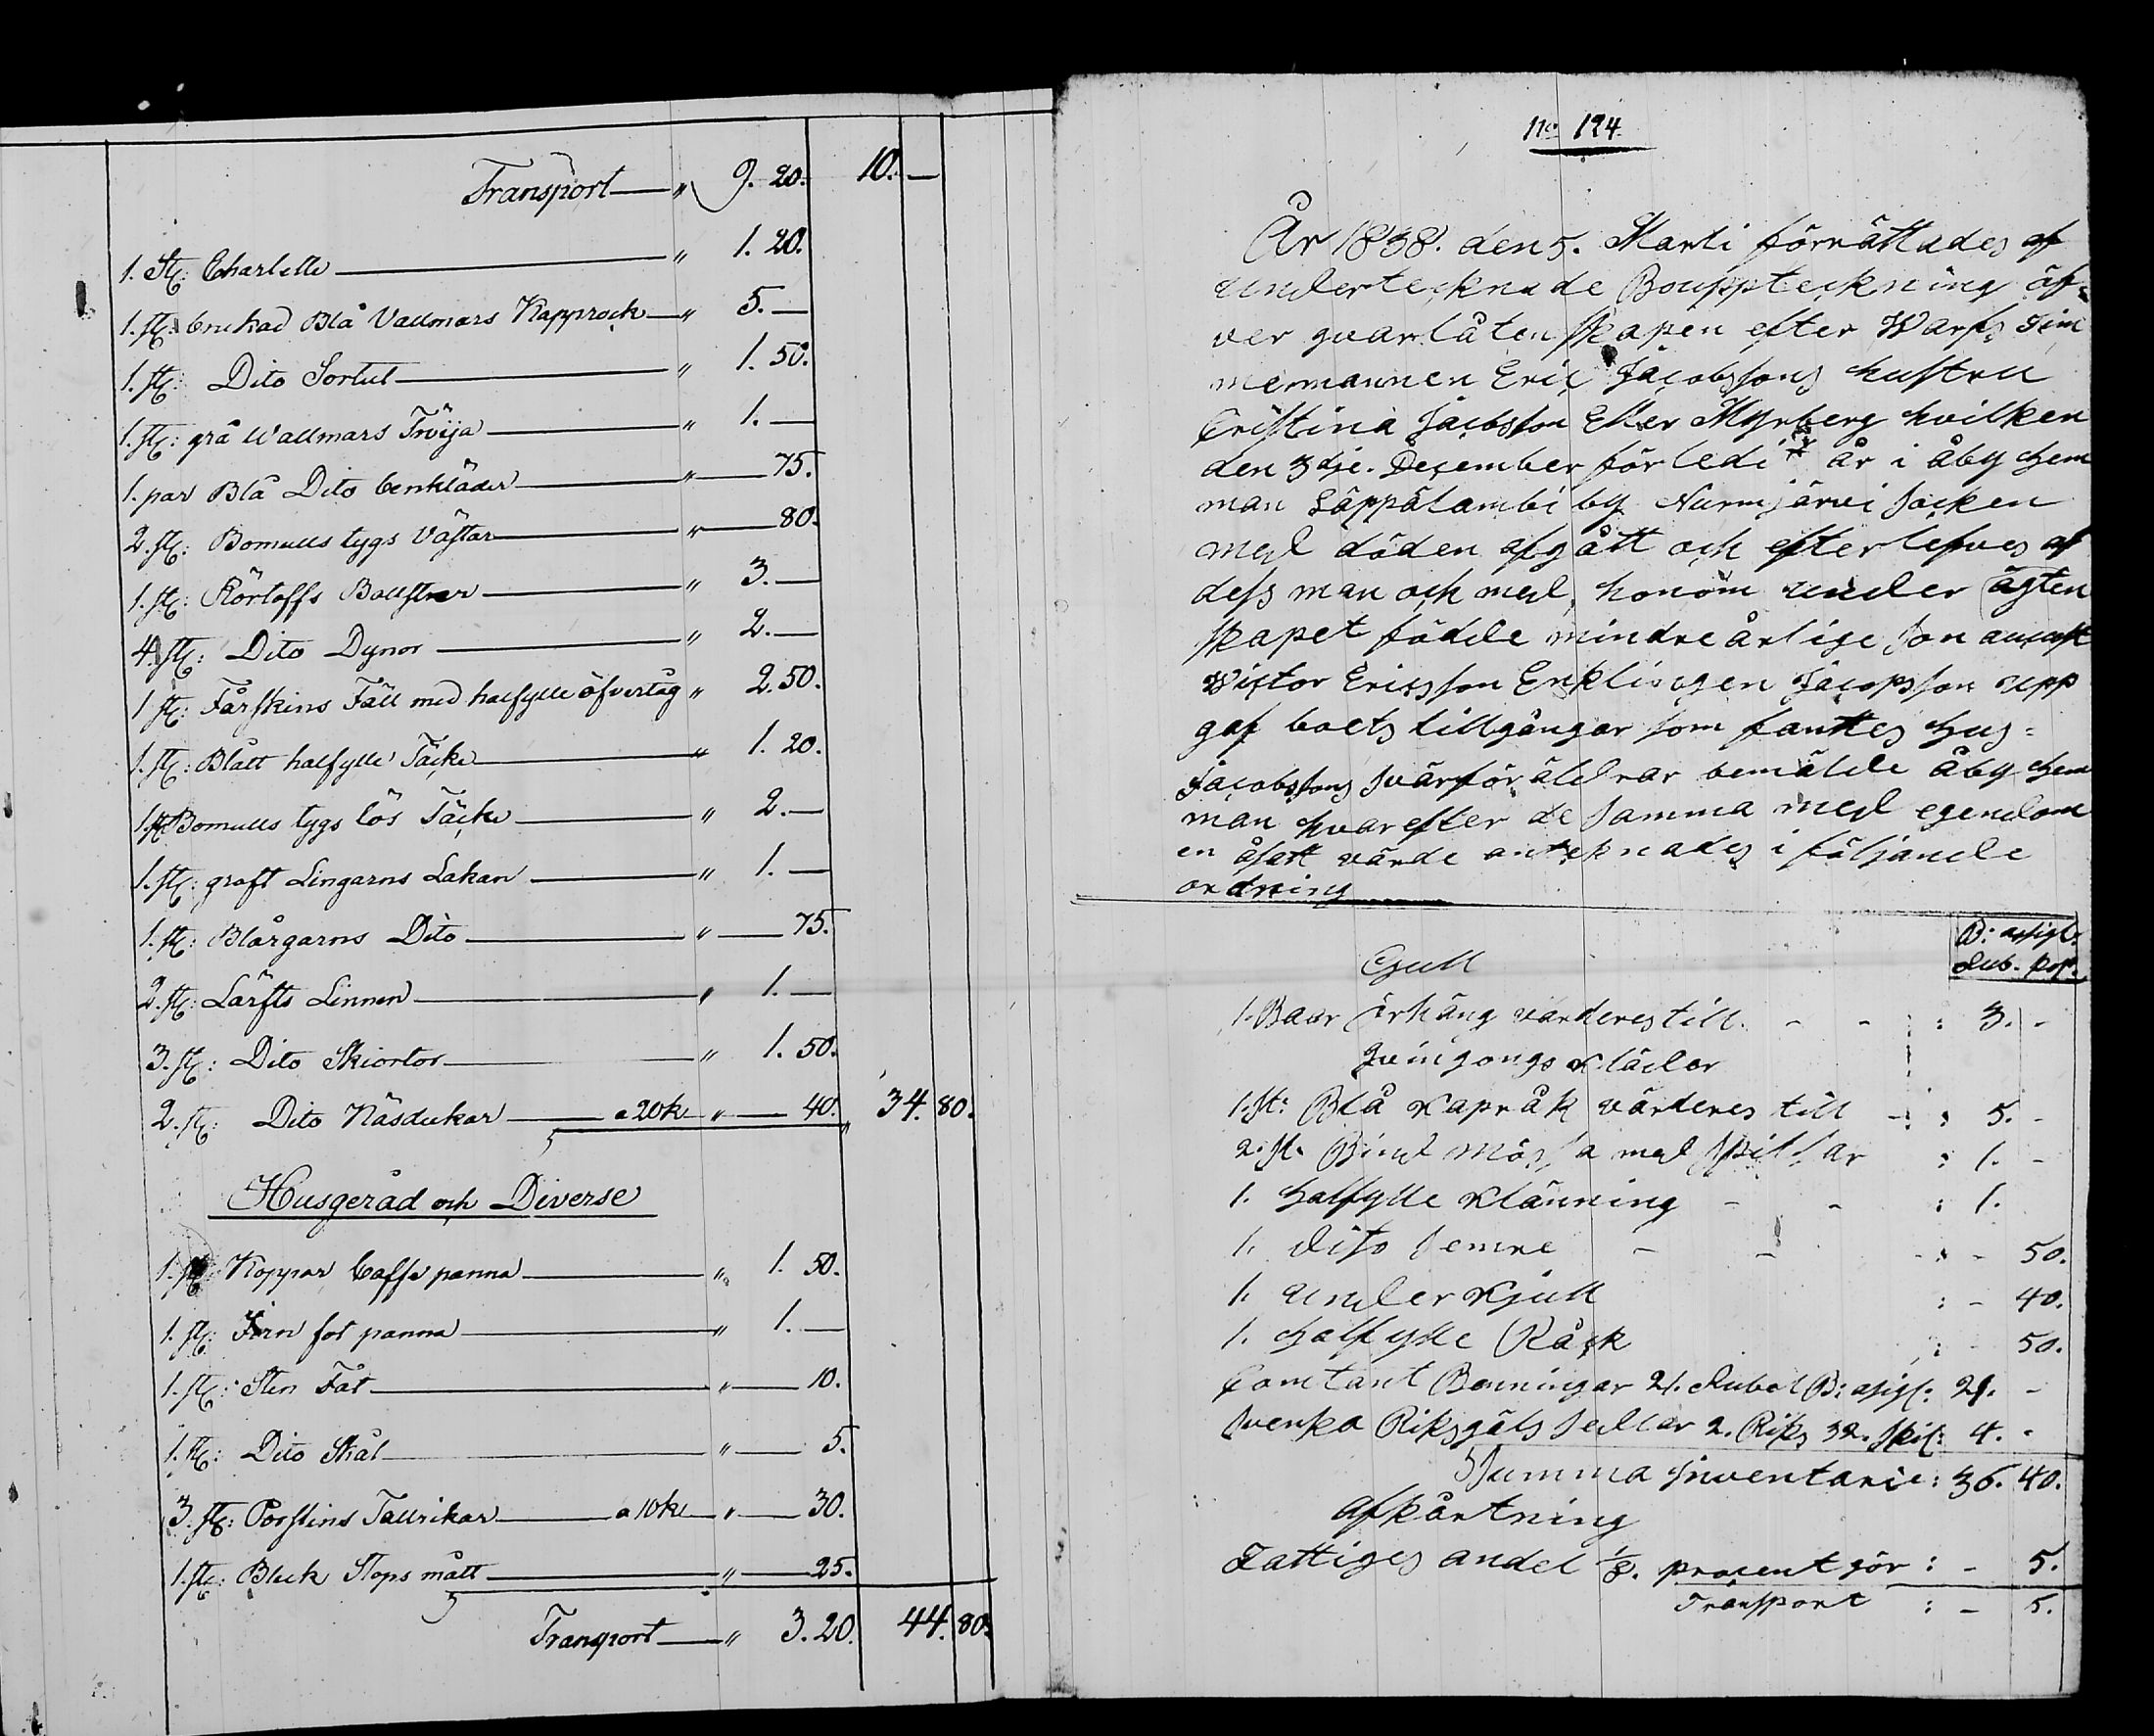 Transport — " 9. 20. 10. —
1. St: Charlette — " 1. 20.
1. St: Blå Vallmars Kapprock — " 5. —
1. St: Dito Sortut — " 1. 50.
1. St: grå Wallmars Tröija — " 1. —
1. par Blå Dito benkläder — " — 75.
2. St: Bomulls tygs Västar — " — 80.
1. St: Bollstrar — " 3. —
4. St: Dito Dynor — " 2. —
1 St: Fårskins Fäll med halfylle öfvertåg " 2. 50.
1. St: Blått halfylle Täcke — " 1. 20.
1. St Bomulls tygs lös Täcke — " 2. —
1. St: groft Lingarns Lakan — " 1. —
1. St: Blårgarns Dito — " — 75.
2. St: Lärfts Linnen — " 1. —
3. St: Dito Skiortor — " 1. 50.
2. St: Dito Näsdukar — a 20k " — 40. " 34. 80.
Husgeråd och Diverse
1. St Koppar Caffe panna — " 1. 50.
1. St: Jern fot panna — " 1. —
1. St: Sten Fat — " — 10.
1. St: Dito Skål — " — 5.
3. St: Porslins Tallrikar — a 10k " — 30.
1. St: Bleck Stops mått — " — 25.
Transport — " 3. 20. 44. 80.
No 124
År 1838. den 5. Marti förrättades af
undertecknade Bouppteckning öf-
ver qvarlåtenskapen efter Warfs Tim
mermannen Eric Jacobssons hustru
Cristina Jacobsson Eller Myrberg hvilken
den 3dje. December förledit år i åby hem
man Läppälambi by Nurmjärvi Socken
med döden afgått och efterlefves af
dess man och med honom under ägten
skapet födde mindreårlige Son august
Wictor Ericsson Enklingen Jacopsson upp
gaf boets tillgångar som fantes hus=
Jacobssons svärföräldrar bemälde åby hem
man hvarefter de samma med egendom
en åsatt värde anteknades i följande
ordning
B: assigt:
Rub. kop.
Gull
1. Baar örhäng varderes till. - - : 3. -
gångs kläder
1. St: Blå Kapråk värderes till - : 5. -
2. St. Bind mössa med spittsar : 1. -
1. halfylle Klänning - - : 1.
1. dito semre - - - : - 50.
1. under Kjull : - 40.
1. halfylle Råck : - 50.
Comtant Penningar 21. Rubel B: asigt: 21. -
Svenska Riksgäls sedlar 2. Riks 32. skil: 4. -
Summa Inventarie: 36. 40.
afkårtning
Fattiges andel 1/8. procent gör : - 5.
Transport : - 5.